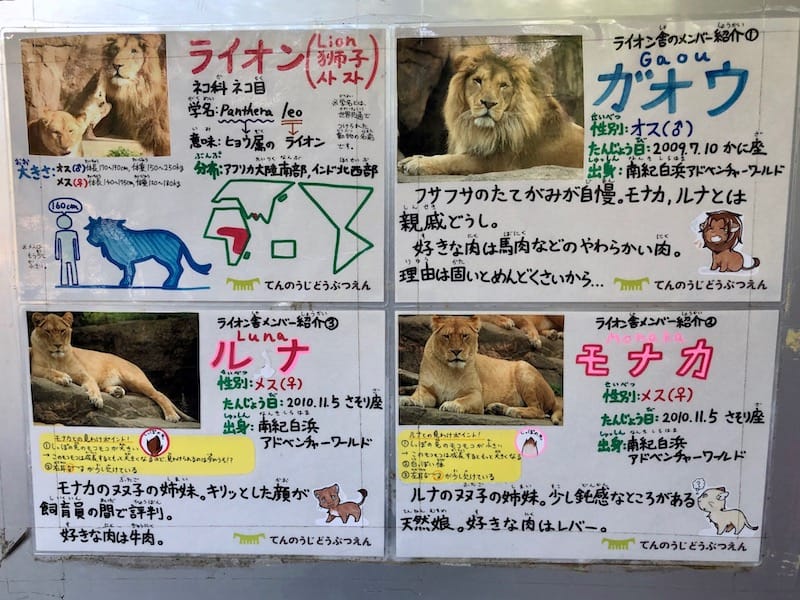 ライオン(Lion 獅子 사자)
ネコ科 ネコ目
学名:Panthera leo
意味:ヒョウ属の ライオン
分布:アフリカ大陸南部,インド北西部
大きさ:オス(♂)
メス(♀)
160cm
てんのうじどうぶつえん
ライオン舎のメンバー紹介①
Gaou
ガオウ
性別:オス(♂)
たんじょう日:2009.7.10 かに座
出身:南紀白浜アドベンチャーワールド
フサフサのたてがみが自慢。モナカ,ルナとは
親戚どうし。
好きな肉は馬肉などのやわらかい肉。
理由は固いとめんどくさいから…
てんのうじどうぶつえん
ライオン舎メンバー紹介③
Luna
ルナ
性別:メス(♀)
たんじょう日:2010.11.5 さそり座
出身:南紀白浜
アドベンチャーワールド
モナカとの見わけポイント!
モナカの双子の姉妹。キリッとした顔が
飼育員の間で評判。
好きな肉は牛肉。
てんのうじどうぶつえん
ライオン舎メンバー紹介②
Monaka
モナカ
性別:メス(♀)
たんじょう日:2010.11.5 さそり座
出身:南紀白浜
アドベンチャーワールド
ルナとの見わけポイント!
ルナの双子の姉妹。少し鈍感なところがある
天然娘。好きな肉はレバー。
てんのうじどうぶつえん